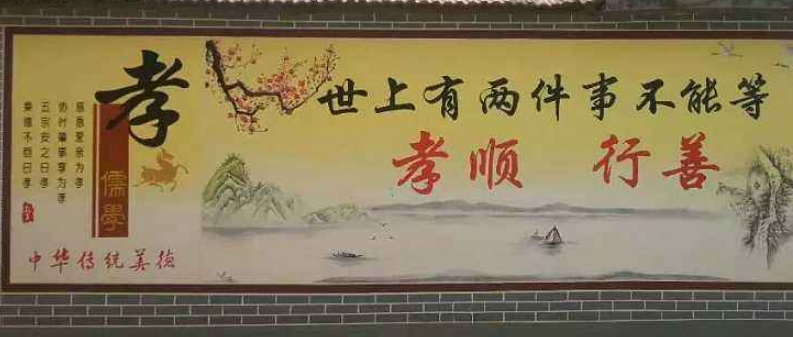 孝
儒學
慈惠爱亲为孝
协时肇享为孝
五宗安之曰孝
秉德不回曰孝
中华传统美德
世上有两件事不能等
孝顺 行善